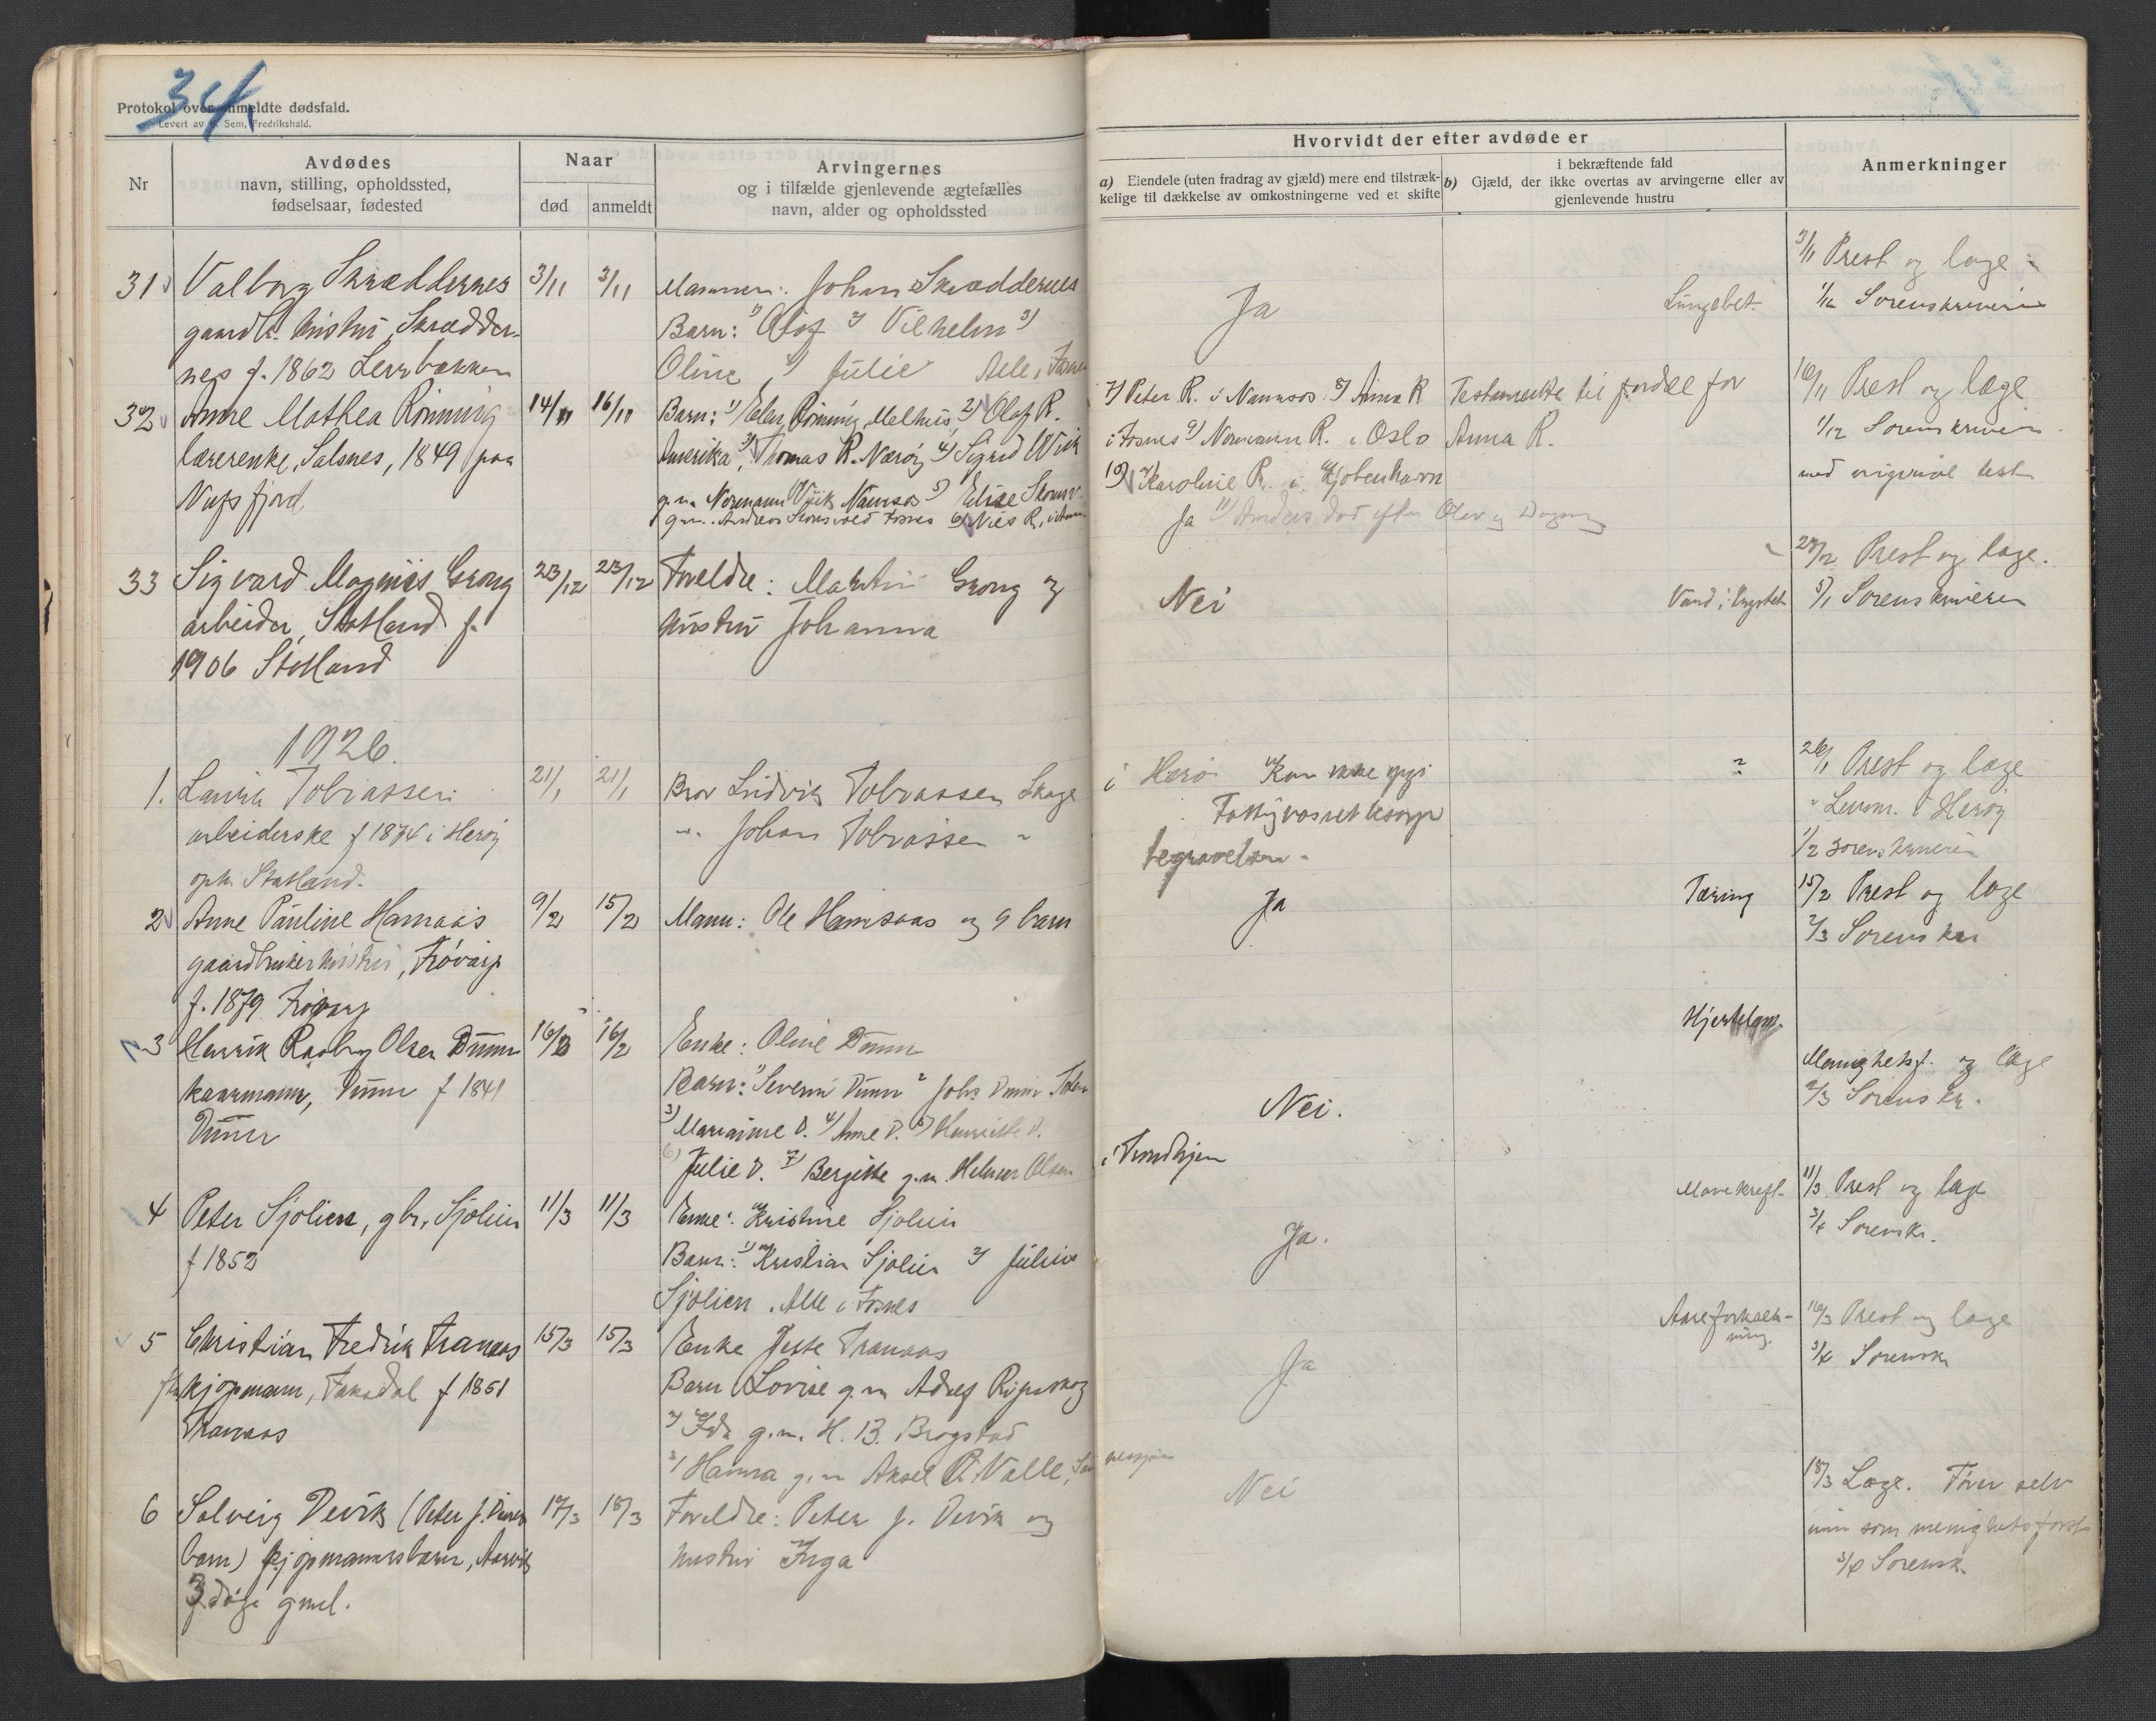 34
Protokol over anmeldte dødsfald.
Levert av Sem, Fredrikshald.
Nr
Avdødes
navn, stilling, opholdssted,
fødselsaar, fødested
Naar
død
anmeldt
Arvingernes
og i tilfælde gjenlevende ægtefælles
navn, alder og opholdssted
Hvorvidt der efter avdøde er
a) Eiendele (uten fradrag av gjæld) mere end tilstræk-
kelige til dækkelse av omkostningerne ved et skifte
i bekræftende fald
b) Gjæld, der ikke overtas av arvingerne eller av
gjenlevende hustru
Anmerkninger
31 Valborg Skræddernes 3/11 3/11 Mannen: Johan Skræddernes
gaardbr. hustru, Skrædder- Barn: 1) Olaf 2) Vilhelm 3)
nes f. 1862 Lerrbakken Oline 4) Julie Alle i Fosnes
Ja Lungebet. 3/11 Prest og læge
1/12 Sorenskriveren
32 Anne Mathea Rønning 14/11 16/11 Barn: 1) Elen Rønning, Melhus 2) Olaf R.
lærerenke, Salsnes, 1849 paa Amerika, 3) Thomas R. Nærøy 4) Sigrid Wiik
g.m. Normann Wiik Namsos 5) Elise
g.m. Andreas Fosnes 6) Nils R.
7) Peter R. i Namsos 8) Anna R Testamente til fordel for
i Fosnes 9) Normann R. i Oslo Anna R.
10) Karoline R. i Kjøbenhavn
Ja 11) Anders død efter Olav og
16/11 Prest og læge
1/12 Sorenskriveren
med original test
33 Sigvard Magnus Grong 23/12 23/12 Foreldre: Martin Grong og
arbeider, Statland f. hustru Johanna
1906 Statland
Nei Vand i brystet 28/12 Prest og læge.
5/1 Sorenskriveren
1926.
1. Tobiassen 21/1 21/1 Bror Ludvik Tobiassen
arbeiderske f 1874 i Herøy Johan Tobiassen
oph. Statland.
i Herø Kan ikke opgi
Fattigvæsnet besørger
begravelsen
? 26/1 Prest og læge
Lensm. i Herøy
1/2 Sorenskriveren
2 Anne Pauline Hamsaas 9/2 15/2 Mann: Ole Hamsaas og 9 barn
gaardbrukerhustru, Frøvarp
f. 1879 Frøvarp
Ja Tæring 15/2 Prest og læge
2/3 Sorenskr
3 Henrik Olsen Duun 16/2 16/2 Enke: Oline Duun
kaarmann, Duun f 1841 Barn: 1) Severin Duun 2 Johs Duun
Duun 3) Marianne D. 4) Anne D. 5) Henriette D.
6) Julie D. 7) Bergitte g.m. Helmer Olsen i Trondhjem
Nei. Hjertelam.
Menighetsf. og læge
2/3 Sorenskr.
4 Peter Sjølien, gbr, Sjølien 11/3 11/3 Enke: Kristine Sjølien
f 1852 Barn: 1) Kristian Sjølien 2) Julius
Sjølien. Alle i Fosnes
Ja. Mavekreft. 11/3 Prest og læge
3/4 Sorenskr.
5 Christian Fredrik Tranaas 15/3 15/3 Enke Jette Tranaas
fh. kjøpmann, Faksdal f 1851 Barn Lovise g.m Adolf
Tranaas 2) Ida g.m. H. B. Brogstad
3) Hanna g.m Aksel R. Valle,
Ja Aareforkalk-
ning. 16/3 Prest og læge
3/4 Sorenskr
6 Solveig Devik (Peter J. Deviks 17/3 18/3 Foreldre: Peter J. Devik og
barn) kjøpmannsbarn, Aarvik hustru Inga
3 døgn gmel.
Nei 18/3 Læge. Fører selv
inn som menighetsforst
3/4 Sorenskr.